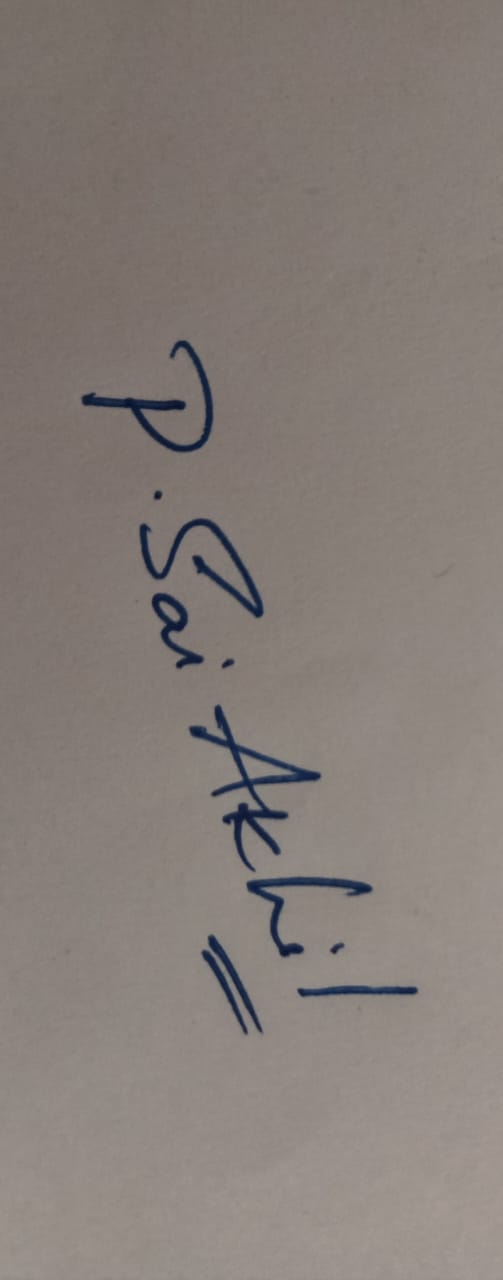 P. Sai Akhil